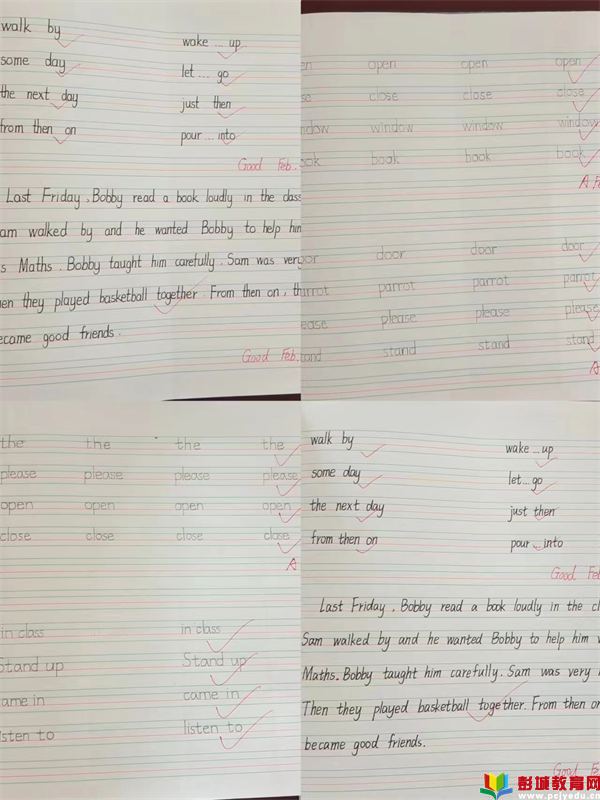 walk by
wake ... up
some day
let ... go
the next day
just then
from then on
pour ... into
Good Feb.
Last Friday, Bobby read a book loudly in the class
am walked by and he wanted Bobby to help him
s Maths. Bobby taught him carefully. Sam was very
hen they played basketball together. From then on, th
ecame good friends.
Good Feb.
en open open open
se close close close
indow window window window
ook book book book
A Fe
oor door door door
arrot parrot parrot parrot
ease please please please
tand stand stand stand
A
the the the the
please please please please
open open open open
close close close close
A
in class in class
Stand up Stand up
ame in came in
isten to listen to
walk by
wake ... up
some day
let ... go
the next day
just then
from then on
pour ... into
Good Feb
Last Friday, Bobby read a book loudly in the cl
Sam walked by and he wanted Bobby to help him
Maths. Bobby taught him carefully. Sam was very
Then they played basketball together. From then on
became good friends.
Good
彭城教育网
www.pcjyedu.cn